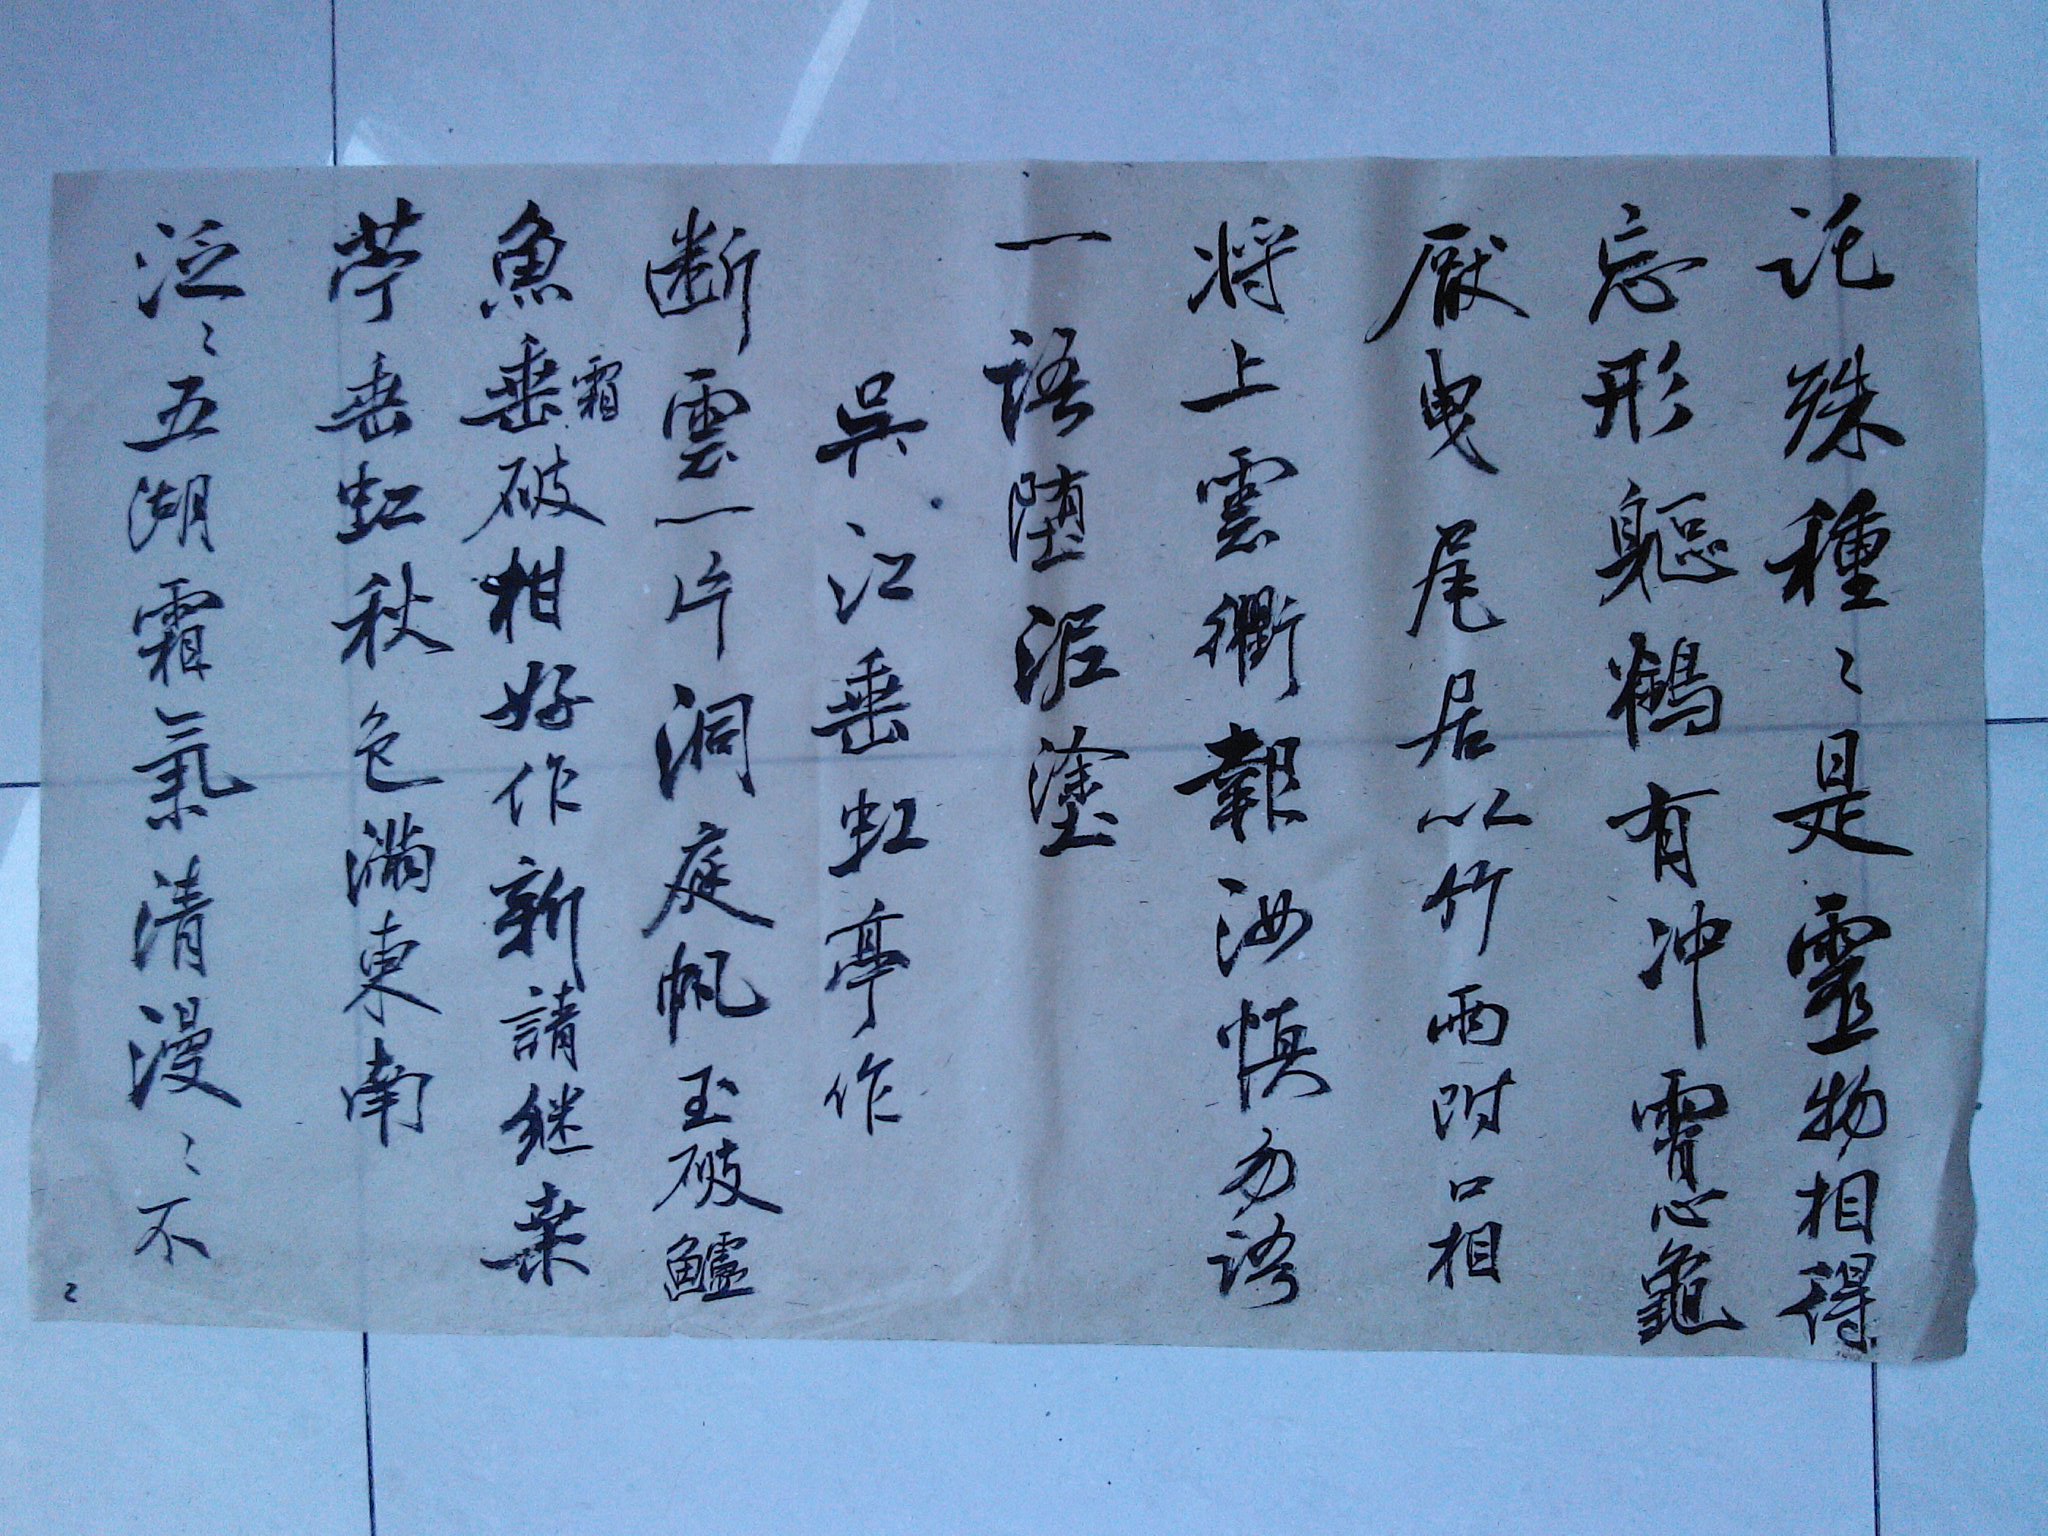 託殊種〻是靈物相得
忘形軀鶴有冲霄心龜
厭曳尾居以竹兩附口相
将上雲衢報汝慎勿語
一語堕泥塗
吳江垂虹亭作
断雲一片洞庭帆玉破鱸
霜
魚垂破柑好作新請継桒
苧垂虹秋色滿東南
泛〻五湖霜氣清漫〻不
〻